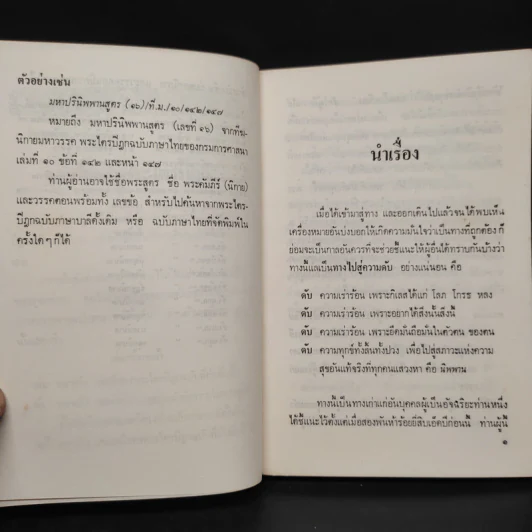 ตัวอย่างเช่น
มหาปรินิพพานสูตร (๑๖)/ที.ม./๑๐/๑๔๒/๑๔๗
หมายถึง มหาปรินิพพานสูตร (เลขที่ ๑๖) จากทีฆ-
นิกายมหาวรรค พระไตรปิฎกฉบับภาษาไทยของกรมการศาสนา
เล่มที่ ๑๐ ข้อที่ ๑๔๒ และหน้า ๑๔๗
ท่านผู้อ่านอาจใช้ชื่อพระสูตร ชื่อ พระคัมภีร์ (นิกาย)
และวรรคตอนพร้อมทั้ง เลขข้อ สำหรับไปค้นหาจากพระไตร-
ปิฎกฉบับภาษาบาลีดั้งเดิม หรือ ฉบับภาษาไทยที่จัดพิมพ์ใน
ครั้งใด ๆ ก็ได้
นำเรื่อง
เมื่อได้เข้ามาสู่ทาง และออกเดินไปแล้วจนได้พบเห็น
เครื่องหมายอันบ่งบอกให้เกิดความมั่นใจว่าเป็นทางที่ถูกต้อง ก็
ย่อมจะเป็นกาลอันควรที่จะช่วยชี้แนะให้ผู้อื่นได้ทราบกันบ้างว่า
ทางนี้แลเป็นทางไปสู่ความดับ อย่างแน่นอน คือ
ดับ ความเร่าร้อน เพราะกิเลสได้แก่ โลภ โกรธ หลง
ดับ ความเร่าร้อน เพราะอยากได้สิ่งนั้นสิ่งนี้
ดับ ความเร่าร้อน เพราะยึดมั่นถือมั่นในตัวตน ของตน
ดับ ความทุกข์ทั้งสิ้นทั้งปวง เพื่อไปสู่สภาวะแห่งความ
สุขอันแท้จริงที่ทุกคนแสวงหา คือ นิพพาน
ทางนี้เป็นทางเก่าแก่อันบุคคลผู้เป็นอัจฉริยะท่านหนึ่ง
ได้ชี้แนะไว้ตั้งแต่เมื่อสองพันห้าร้อยยี่สิบเอ็ดปีก่อนนี้ ท่านผู้นี้
๑